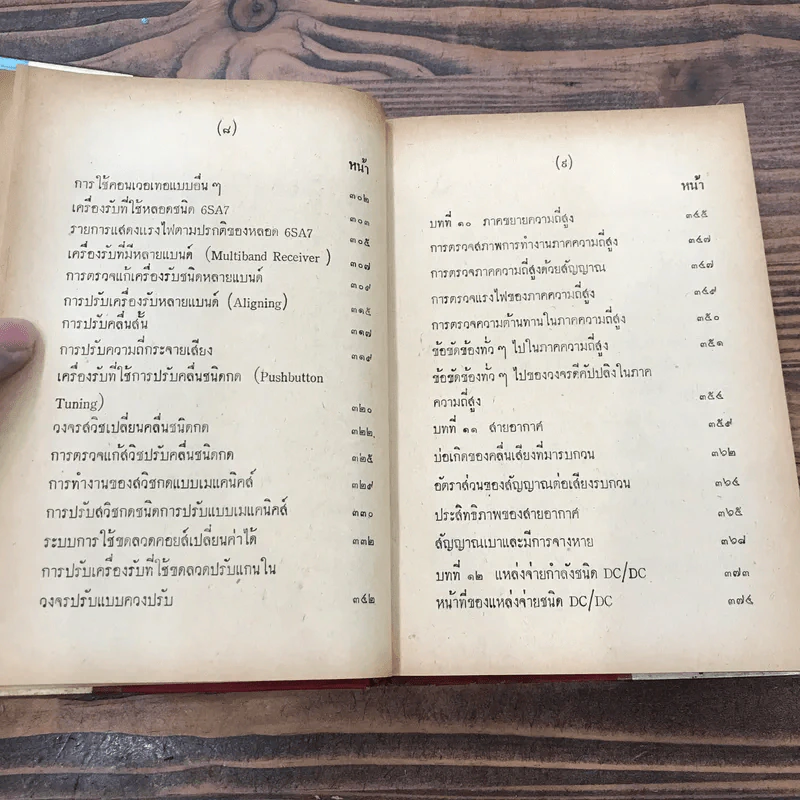 (๘)
หน้า
การใช้คอนเวอเทอแบบอื่น ๆ ๓๐๒
เครื่องรับที่ใช้หลอดชนิด 6SA7 ๓๐๓
รายการแสดงแรงไฟตามปรกติของหลอด 6SA7 ๓๐๕
เครื่องรับที่มีหลายแบนด์ (Multiband Receiver ) ๓๐๗
การตรวจแก้เครื่องรับชนิดหลายแบนด์ ๓๐๙
การปรับเครื่องรับหลายแบนด์ (Aligning) ๓๑๕
การปรับคลื่นสั้น ๓๑๗
การปรับความถี่กระจายเสียง ๓๑๙
เครื่องรับที่ใช้การปรับคลื่นชนิดกด (Pushbutton
Tuning) ๓๒๐
วงจรสวิชเปลี่ยนคลื่นชนิดกด ๓๒๒
การตรวจแก้สวิชปรับคลื่นชนิดกด ๓๒๕
การทำงานของสวิชกดแบบเมแคนิคส์ ๓๒๙
การปรับสวิกดชนิดการปรับแบบเมแคนิคส์ ๓๓๐
ระบบการใช้ขดลวดคอยส์เปลี่ยนค่าได้ ๓๓๒
การปรับเครื่องรับที่ใช้ขดลวดปรับแกนใน
วงจรปรับแบบควงปรับ ๓๔๒
(๙)
หน้า
บทที่ ๑๐ ภาคขยายความถี่สูง ๓๔๕
การตรวจสภาพการทำงานภาคความถี่สูง ๓๔๗
การตรวจภาคความถี่สูงด้วยสัญญาณ ๓๔๗
การตรวจแรงไฟของภาคความถี่สูง ๓๔๙
การตรวจความต้านทานในภาคความถี่สูง ๓๕๐
ข้อขัดข้องทั่ว ๆ ไปในภาคความถี่สูง ๓๕๑
ข้อขัดข้องทั่ว ๆ ไปของวงจรดีคัปปลิงในภาค
ความถี่สูง ๓๕๔
บทที่ ๑๑ สายอากาศ ๓๕๙
บ่อเกิดของคลื่นเสียงที่มารบกวน ๓๖๒
อัตราส่วนของสัญญาณต่อเสียงรบกวน ๓๖๔
ประสิทธิภาพของสายอากาศ ๓๖๕
สัญญาณเบาและมีการจางหาย ๓๖๘
บทที่ ๑๒ แหล่งจ่ายกำลังชนิด DC/DC ๓๗๓
หน้าที่ของแหล่งจ่ายชนิด DC/DC ๓๗๔